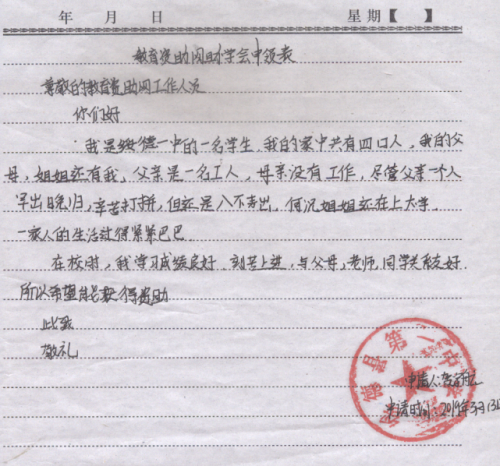 年 月 日 星期【 】
教育资助网助学金申领表
尊敬的教育资助网工作人员
你们好
我是绥德一中的一名学生,我的家中共有四口人,我的父
母,姐姐还有我,父亲是一名工人,母亲没有工作,尽管父亲一个人
早出晚归,辛苦打拼,但还是入不敷出,何况姐姐还在上大学
一家人的生活过得紧紧巴巴
在校时,我学习成绩良好,刻苦上进,与父母,老师,同学关系友好
所以希望能获得资助
此致
敬礼
绥德县第一中学
申请人:
申请时间:2019年3月13日